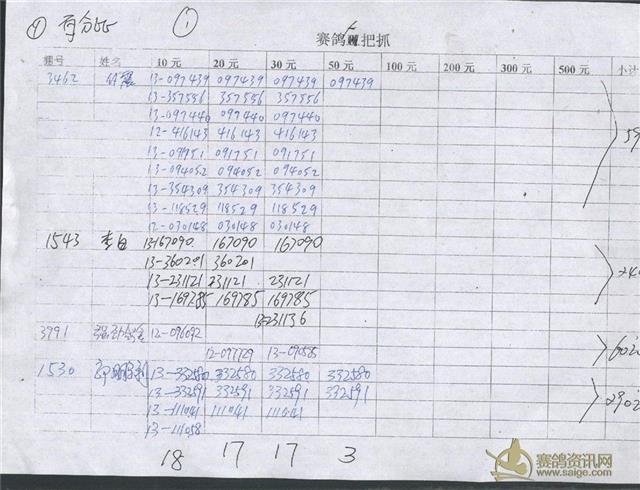 ④ 百分比 ①
赛鸽 把抓
棚号 姓名 10元 20元 30元 50元 100元 200元 300元 500元 小计
3462 13-097439 097439 097439 097439
13-357556 357556 357556
13-097440 097440 097440
12-416143 416143 416143
13-091751 091751 091751
13-094052 094052 094052
13-354309 354309 354309
13-118529 118529 118529
12-030148 030148 030148
1543 李白 13-167090 167090 167090
13-360201 360201
13-231121 231121 231121
13-169785 169785 169785
13-231136
3991 12-096092
12-097729 13-090585
1530 13-332580 332580 332580 332580
13-332591 332591 332591 332591
13-111041 111041 111041
13-111058
18 17 17 3
赛鸽资讯网
www.saige.com